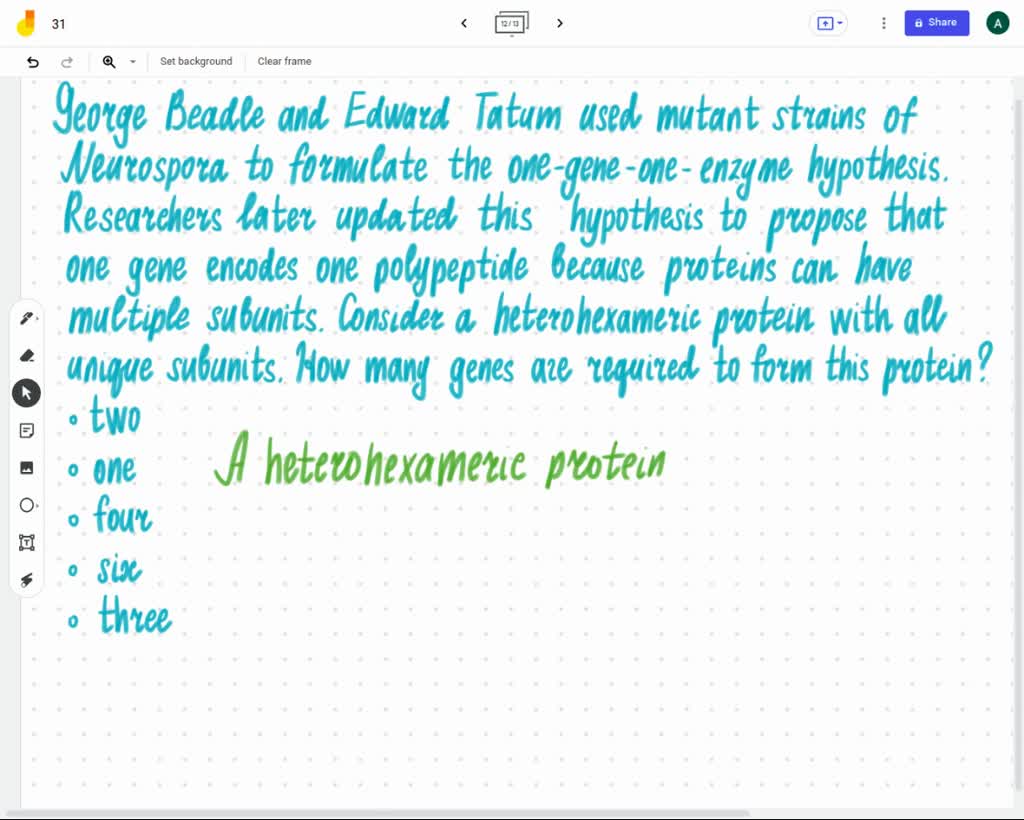 31
12 / 13
Share
A
Set background
Clear frame
George Beadle and Edward Tatum used mutant strains of
Neurospora to formulate the one-gene-one-enzyme hypothesis.
Researchers later updated this hypothesis to propose that
one gene encodes one polypeptide because proteins can have
multiple subunits. Consider a heterohexameric protein with all
unique subunits. How many genes are required to form this protein?
• two
• one
A heterohexameric protein
• four
• six
• three